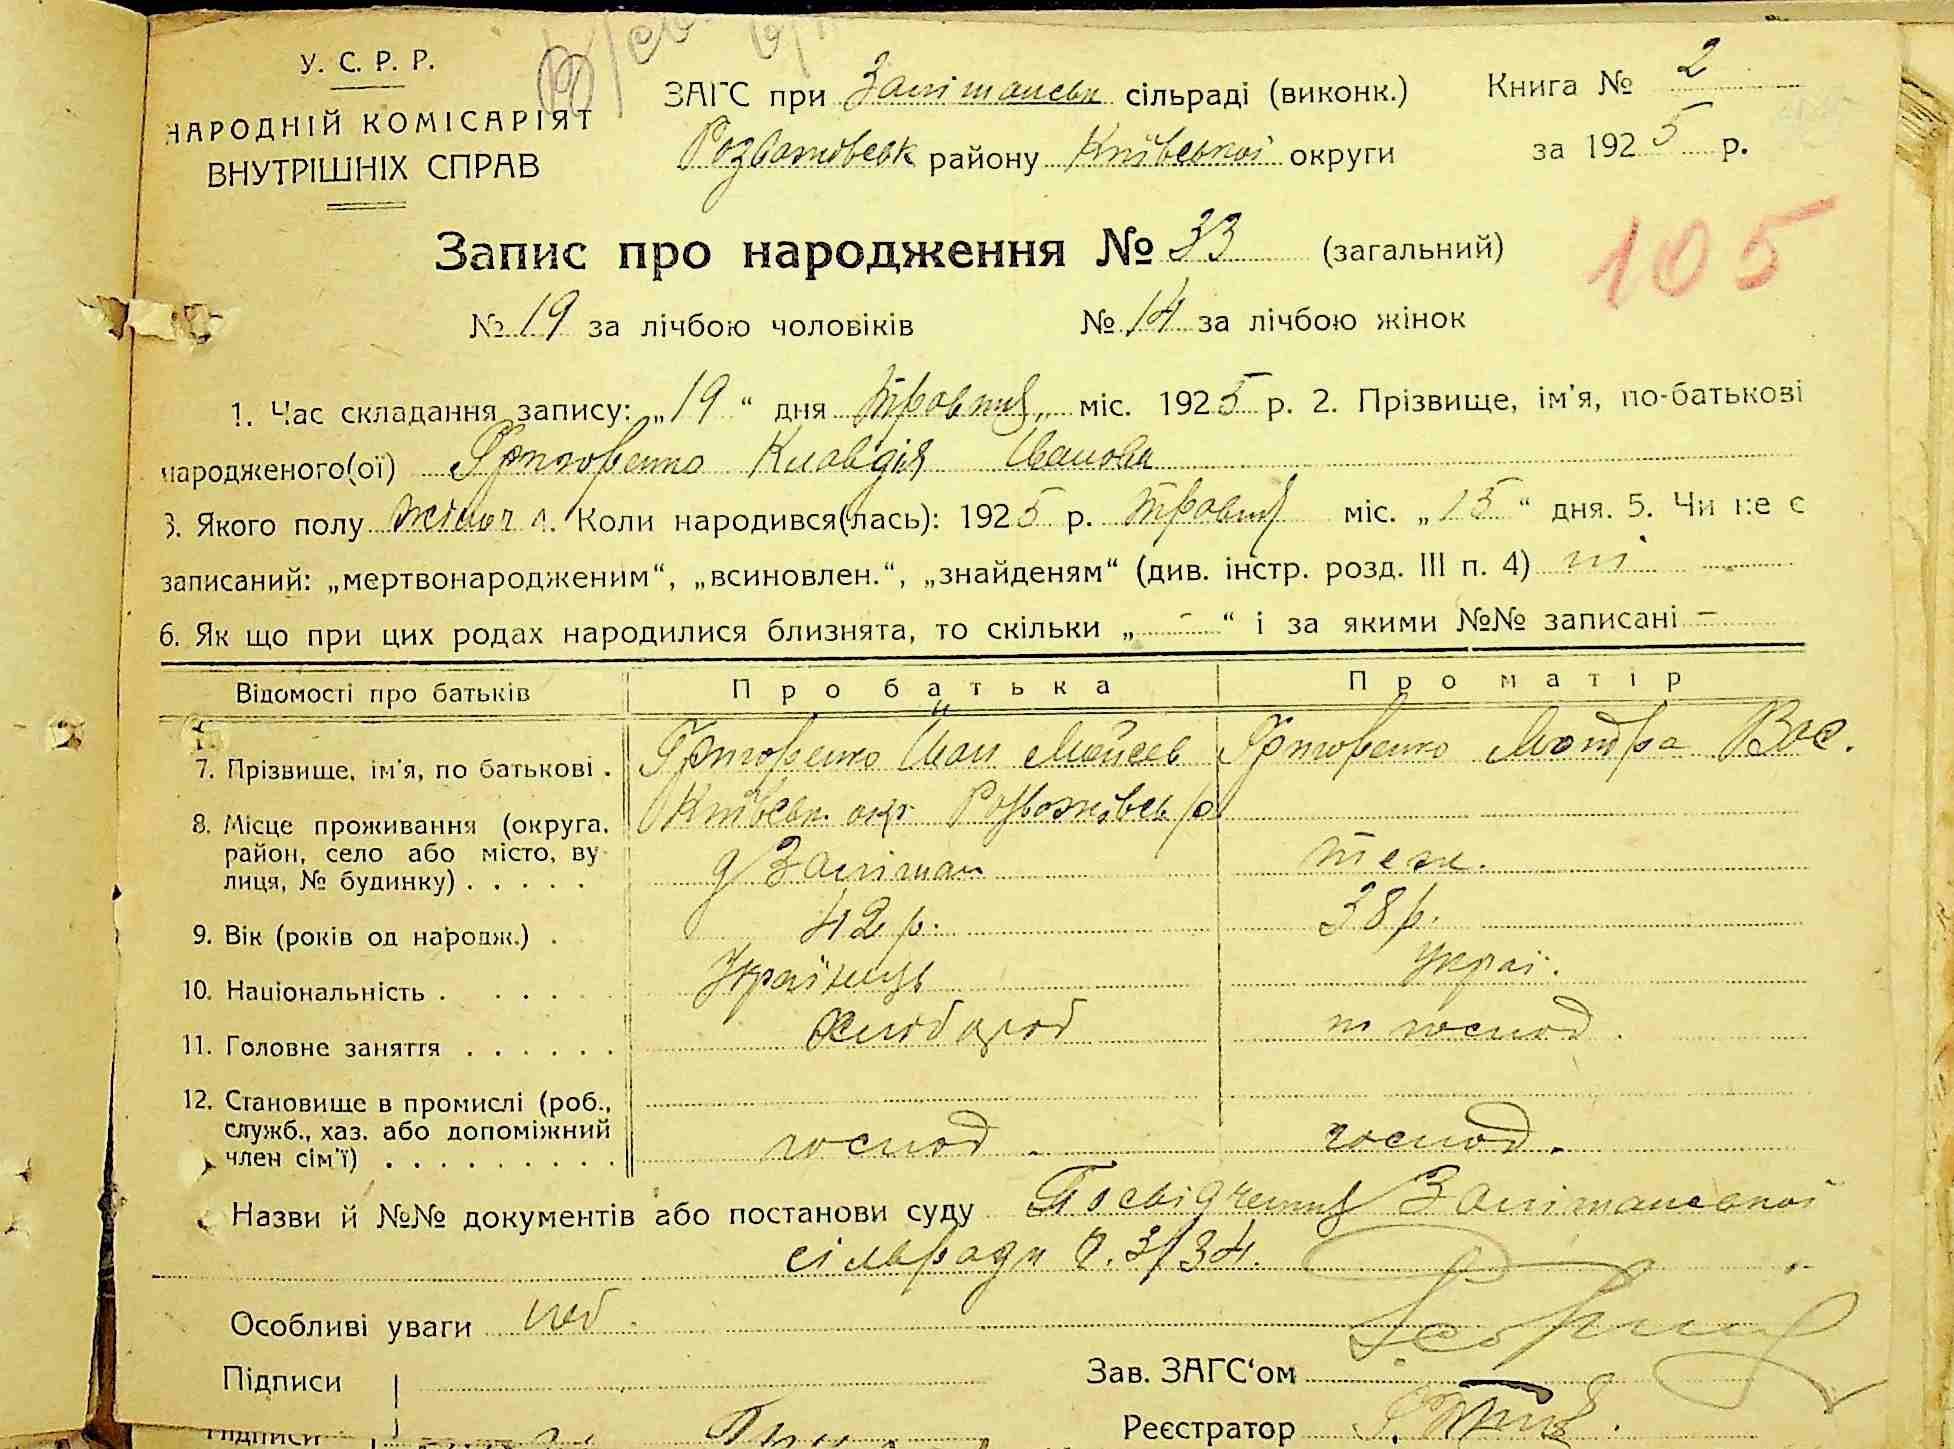 У. С. Р. Р.
НАРОДНІЙ КОМІСАРІЯТ
ВНУТРІШНІХ СПРАВ
ЗАГС при Залішанськ сільраді (виконк.)
Розважівськ району Київської округи
Книга № 2
за 1925 р.
Запис про народження № 33 (загальний)
105
№ 19 за лічбою чоловіків № 14 за лічбою жінок
1. Час складання запису: „19“ дня Травня міс. 1925 р. 2. Прізвище, ім'я, по-батькові
народженого(ої) Григоренко Клавдія Іванова
3. Якого полу жіноч 4. Коли народився(лась): 1925 р. Травня міс. „15“ дня. 5. Чи не є
записаний: „мертвонародженим“, „всиновлен.“, „знайденям“ (див. інстр. розд. III п. 4) ні
6. Як що при цих родах народилися близнята, то скільки „ - “ і за якими №№ записані -
Відомості про батьків Про батька Про матір
7. Прізвище, ім'я, по батькові . Григоренко Іван Мойсеев Григоренко Мотря Вас.
8. Місце проживання (округа, район, село або місто, вулиця, № будинку) . . . . .
Київськ. окр Розважівськ р
Залішан теж.
9. Вік (років од народж.) . 42 р. 38 р.
10. Національність . . . . . Українець Украї.
11. Головне заняття . . . . . . Хлібороб господ.
12. Становище в промислі (роб., служб., хаз. або допоміжний член сім'ї) . . . . . . . . . .
господ. господ.
Назви й №№ документів або постанови суду Посвідчення Залішанської
сільради ч. 3/34.
Особливі уваги
Підписи
Зав. ЗАГС'ом
Реєстратор
Підписи